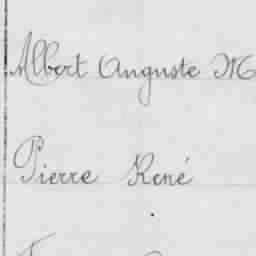 Albert Auguste M
Pierre René